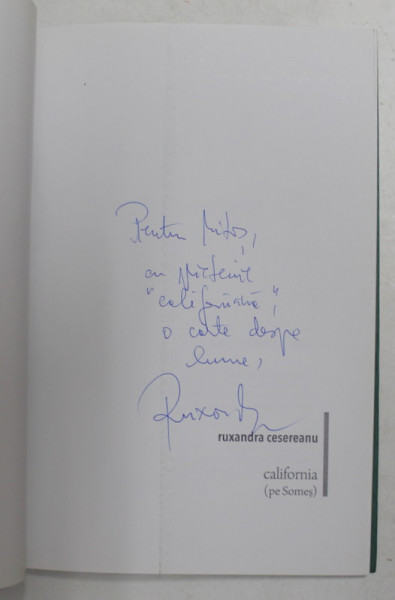 Pentru Mitoș,
cu prietenie
"californiană",
o carte despre
lume,
Ruxandra
ruxandra cesereanu
california
(pe Someș)